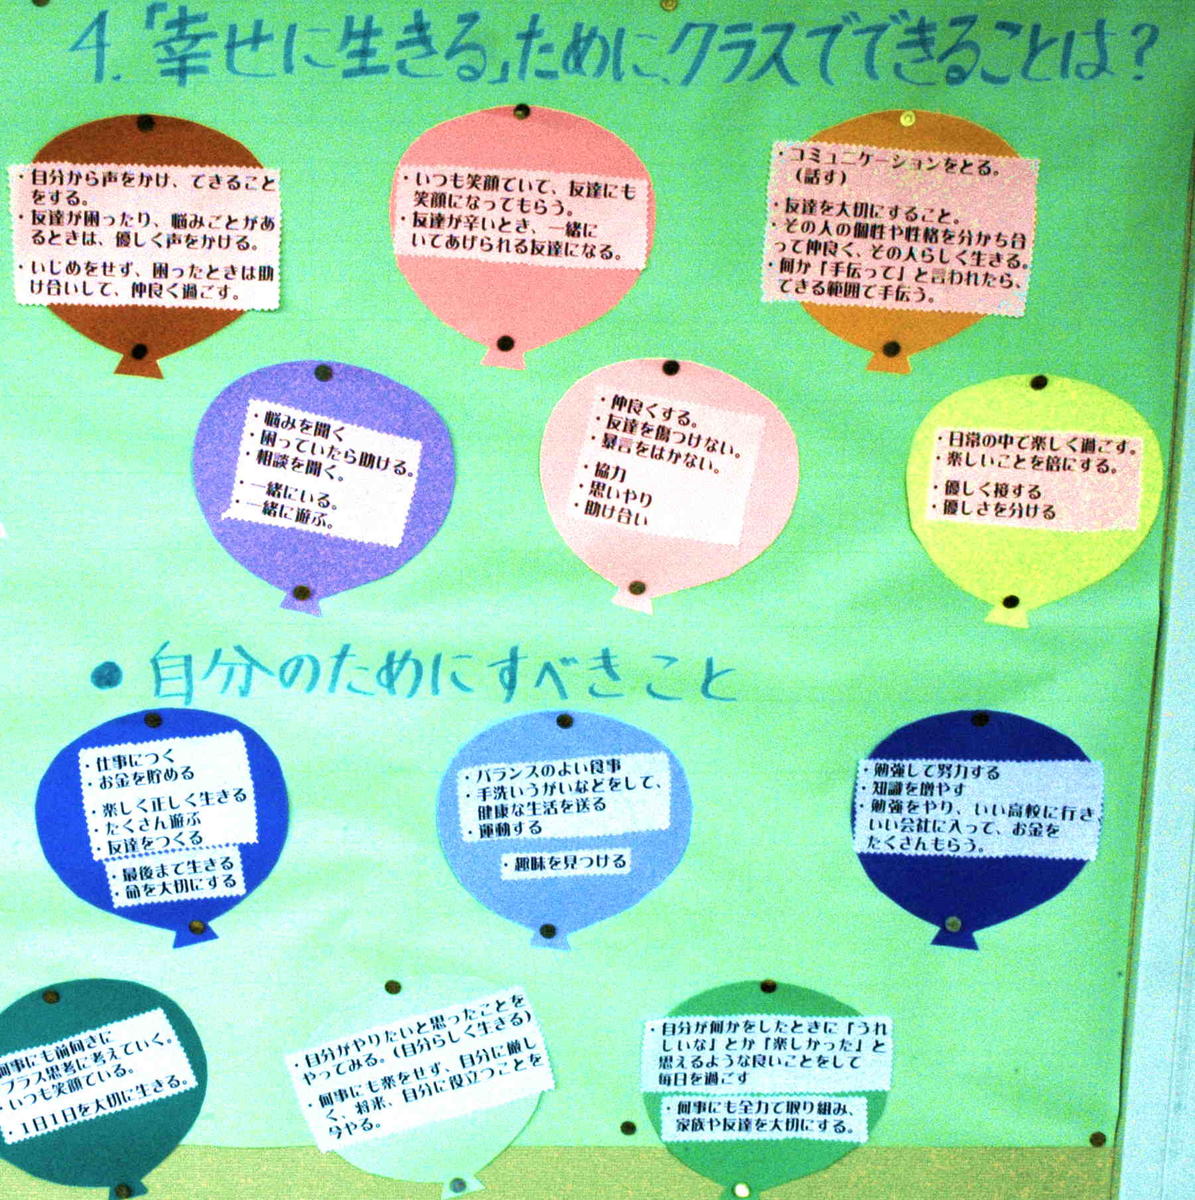 4.「幸せに生きる」ために、クラスでできることは？
・自分から声をかけ、できること
をする。
・友達が困ったり、悩みごとがあ
るときは、優しく声をかける。
・いじめをせず、困ったときは助
け合いして、仲良く過ごす。
・いつも笑顔でいて、友達にも
笑顔になってもらう。
・友達が辛いとき、一緒に
いてあげられる友達になる。
・コミュニケーションをとる。
（話す）
・友達を大切にすること。
・その人の個性や性格を分かち合
って仲良く、その人らしく生きる。
・何か「手伝って」と言われたら、
できる範囲で手伝う。
・悩みを聞く
・困っていたら助ける。
・相談を聞く。
・一緒にいる。
・一緒に遊ぶ。
・仲良くする。
・友達を傷つけない。
・暴言をはかない。
・協力
・思いやり
・助け合い
・日常の中で楽しく過ごす。
・楽しいことを倍にする。
・優しく接する
・優しさを分ける
● 自分のためにすべきこと
・仕事につく
・お金を貯める
・楽しく正しく生きる
・たくさん遊ぶ
・友達をつくる
・最後まで生きる
・命を大切にする
・バランスのよい食事
・手洗いうがいなどをして、
健康な生活を送る
・運動する
・趣味を見つける
・勉強して努力する
・知識を増やす
・勉強をやり、いい高校に行き、
いい会社に入って、お金を
たくさんもらう。
何事にも前向きに
プラス思考に考えていく。
・いつも笑顔でいる。
・1日1日を大切に生きる。
・自分がやりたいと思ったことを
やってみる。（自分らしく生きる）
・何事にも楽をせず、自分に厳し
く、将来、自分に役立つことを
今やる。
・自分が何かをしたときに「うれ
しいな」とか「楽しかった」と
思えるような良いことをして
毎日を過ごす
・何事にも全力で取り組み、
家族や友達を大切にする。